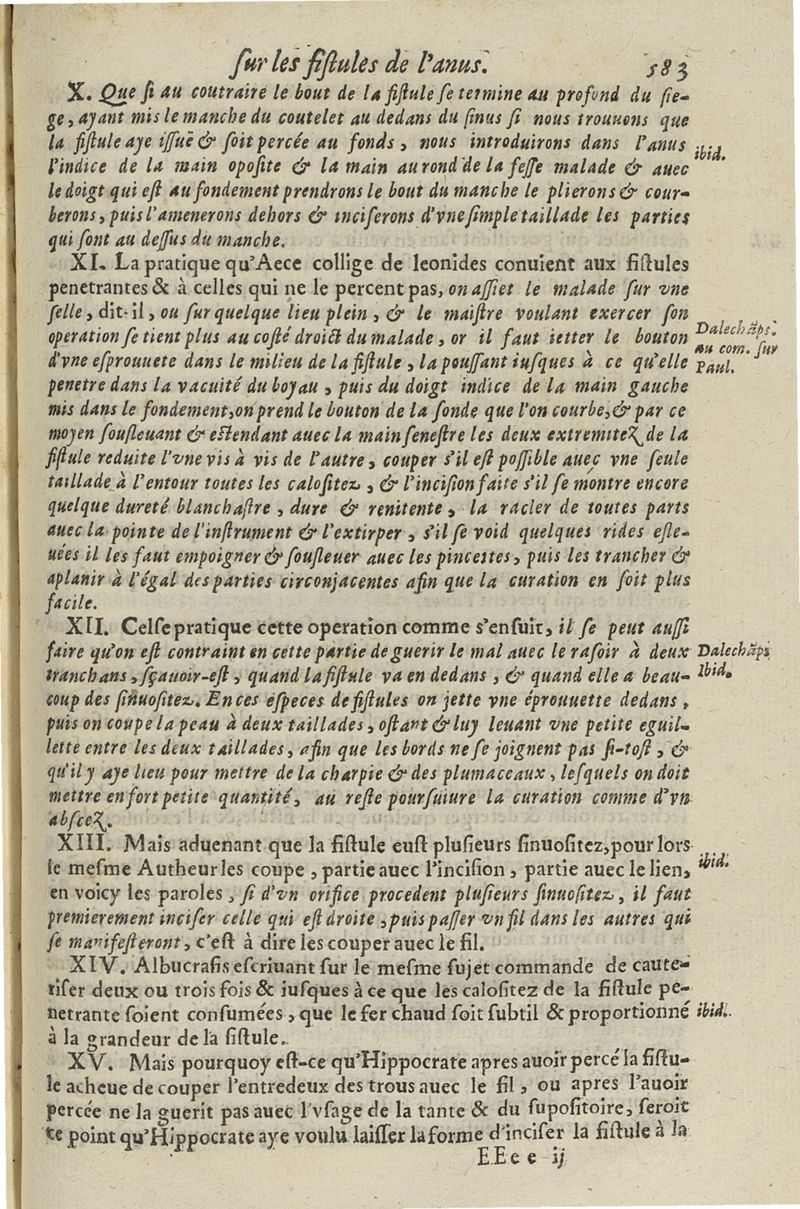 ſur les fiſtules de l'anus. 583
X. Que ſi au coutraire le bout de la fiſtule ſe termine au profond du ſie-
ge, ayant mis le manche du coutelet au dedans du ſinus ſi nous trouuons que
la fiſtule aye iſſuë & ſoit percée au fonds, nous introduirons dans l'anus
ibid.
l'indice de la main opoſite & la main au rond de la feſſe malade & auec
le doigt qui eſt au fondement prendrons le bout du manche le plierons & cour-
berons, puis l'amenerons dehors & inciſerons d'vne ſimple taillade les parties
qui ſont au deſſus du manche.
XI. La pratique qu'Aece collige de leonides conuient aux fiſtules
penetrantes & à celles qui ne le percent pas, on aſſiet le malade ſur vne
ſelle, dit-il, ou ſur quelque lieu plein, & le maiſtre voulant exercer ſon
operation ſe tient plus au coſté droict du malade, or il faut ietter le bouton
Dalechāps.
d'vne eſprouuete dans le milieu de la fiſtule, la pouſſant iuſques à ce qu'elle
au com. ſur
penetre dans la vacuité du boyau, puis du doigt indice de la main gauche
Paul.
mis dans le fondement, on prend le bouton de la ſonde que l'on courbe, & par ce
moyen ſouſleuant & eſtendant auec la main ſeneſtre les deux extremitez de la
fiſtule reduite l'vne vis à vis de l'autre, couper s'il eſt poſſible auec vne ſeule
taillade à l'entour toutes les caloſitez, & l'inciſion faite s'il ſe montre encore
quelque dureté blanchaſtre, dure & renitente, la racler de toutes parts
auec la pointe de l'inſtrument & l'extirper, s'il ſe void quelques rides eſle-
uées il les faut empoigner & ſouſleuer auec les pincettes, puis les trancher &
aplanir à l'égal des parties circonjacentes afin que la curation en ſoit plus
facile.
XII. Celſe pratique cette operation comme s'enſuit, il ſe peut auſſi
faire qu'on eſt contraint en cette partie de guerir le mal auec le raſoir à deux
Dalechāps
tranchans, ſçauoir-eſt, quand la fiſtule va en dedans, & quand elle a beau-
Ibid.
coup des ſinuoſitez. En ces eſpeces de fiſtules on jette vne éprouuette dedans,
puis on coupe la peau à deux taillades, oſtant & luy leuant vne petite eguil-
lette entre les deux taillades, afin que les bords ne ſe joignent pas ſi-toſt, &
qu'il y aye lieu pour mettre de la charpie & des plumaceaux, leſquels on doit
mettre en fort petite quantité, au reſte pourſuiure la curation comme d'vn
abſcez.
XIII. Mais aduenant que la fiſtule euſt pluſieurs ſinuoſitez, pour lors
le meſme Autheur les coupe, partie auec l'inciſion, partie auec le lien,
ibid.
en voicy les paroles, ſi d'vn orifice procedent pluſieurs ſinuoſitez, il faut
premierement inciſer celle qui eſt droite, puis paſſer vn fil dans les autres qui
ſe manifeſteront, c'eſt à dire les couper auec le fil.
XIV. Albucraſis eſcriuant ſur le meſme ſujet commande de caute-
riſer deux ou trois fois & iuſques à ce que les caloſitez de la fiſtule pe-
netrante ſoient conſumées, que le fer chaud ſoit ſubtil & proportionné
ibid.
à la grandeur de la fiſtule.
XV. Mais pourquoy eſt-ce qu'Hippocrate apres auoir percé la fiſtu-
le acheue de couper l'entredeux des trous auec le fil, ou apres l'auoir
percée ne la guerit pas auec l'vſage de la tante & du ſupoſitoire, ſeroit
ce point qu'Hippocrate aye voulu laiſſer la forme d'inciſer la fiſtule à la
EEee ij